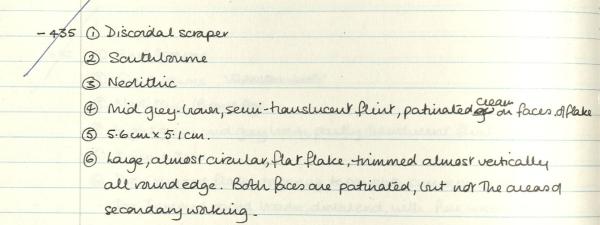 -435 ① Discoidal scraper
② Southbourne
③ Neolithic
④ Mid grey-brown, semi-translucent flint, patinated cream on faces of flake
⑤ 5.6cm x 5.1cm.
⑥ Large, almost circular, flat flake, trimmed almost vertically
all round edge. Both faces are patinated, but not the areas of
secondary working.